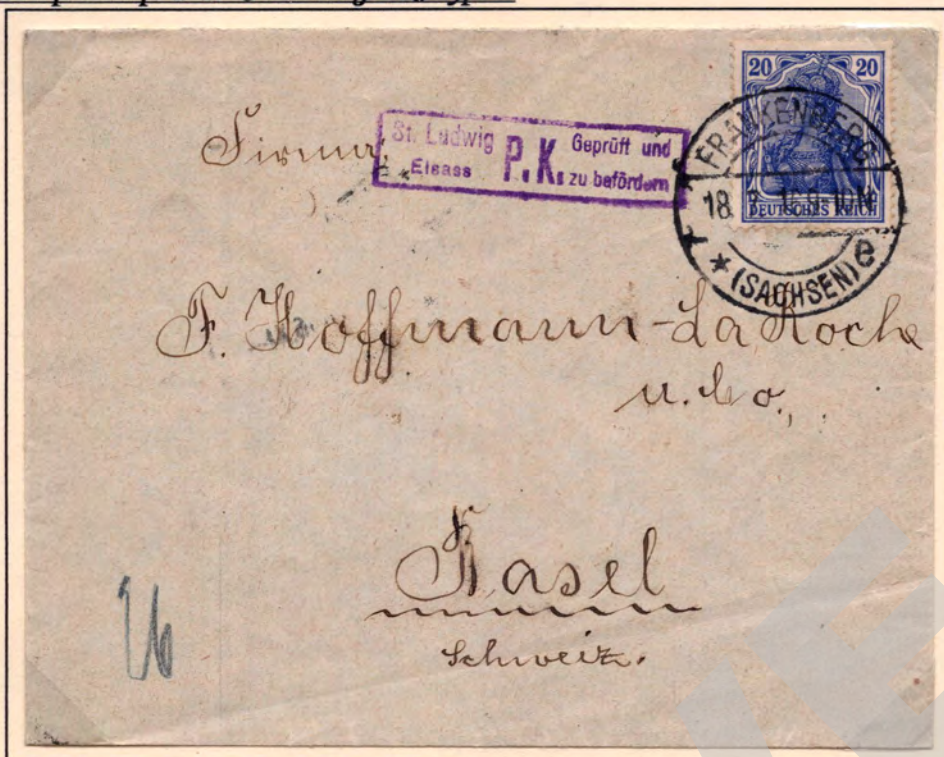 Firma
St. Ludwig
Elsass
P.K.
Geprüft und
zu befördern
20 20
DEUTSCHES REICH
FRANKENBERG
18.
9-10N
* (SACHSEN) e
F. Hoffmann-La Roche
u. Co.,
Basel
Schweiz.